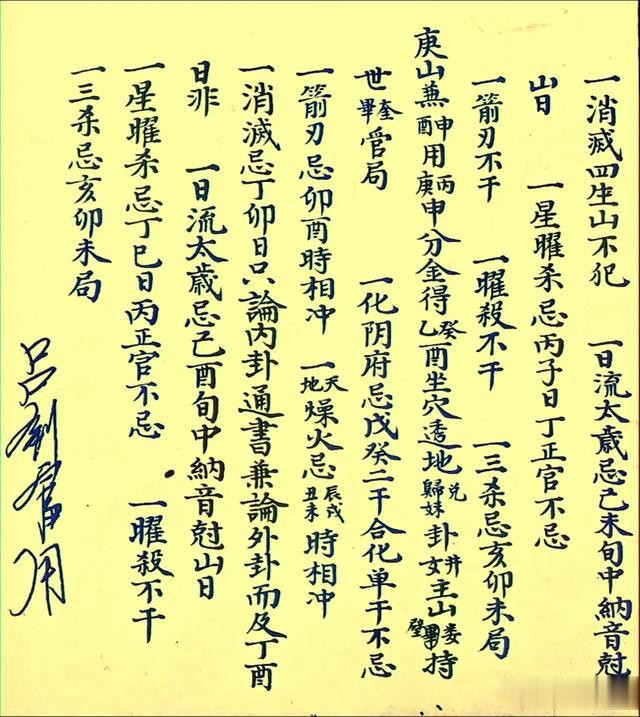 一消滅四生山不犯　一日流太歲忌己未旬中納音尅
山日　一星曜杀忌丙子日丁正官不忌
一箭刃不干　一曜殺不干　一三杀忌亥卯未局
庚山兼申酉用丙庚申分金得癸乙酉坐穴透地兌歸妹卦井女主山婁畢壁持
世奎畢管局　一化阴府忌戊癸二干合化单干不忌
一箭刃忌卯酉時相冲　一天地燥火忌辰戌丑未時相冲
一消滅忌丁卯日只論内卦通書兼論外卦而及丁酉
日非　一日流太歲忌己酉旬中納音尅山日
一星曜杀忌丁巳日丙正官不忌　一曜殺不干
一三杀忌亥卯未局